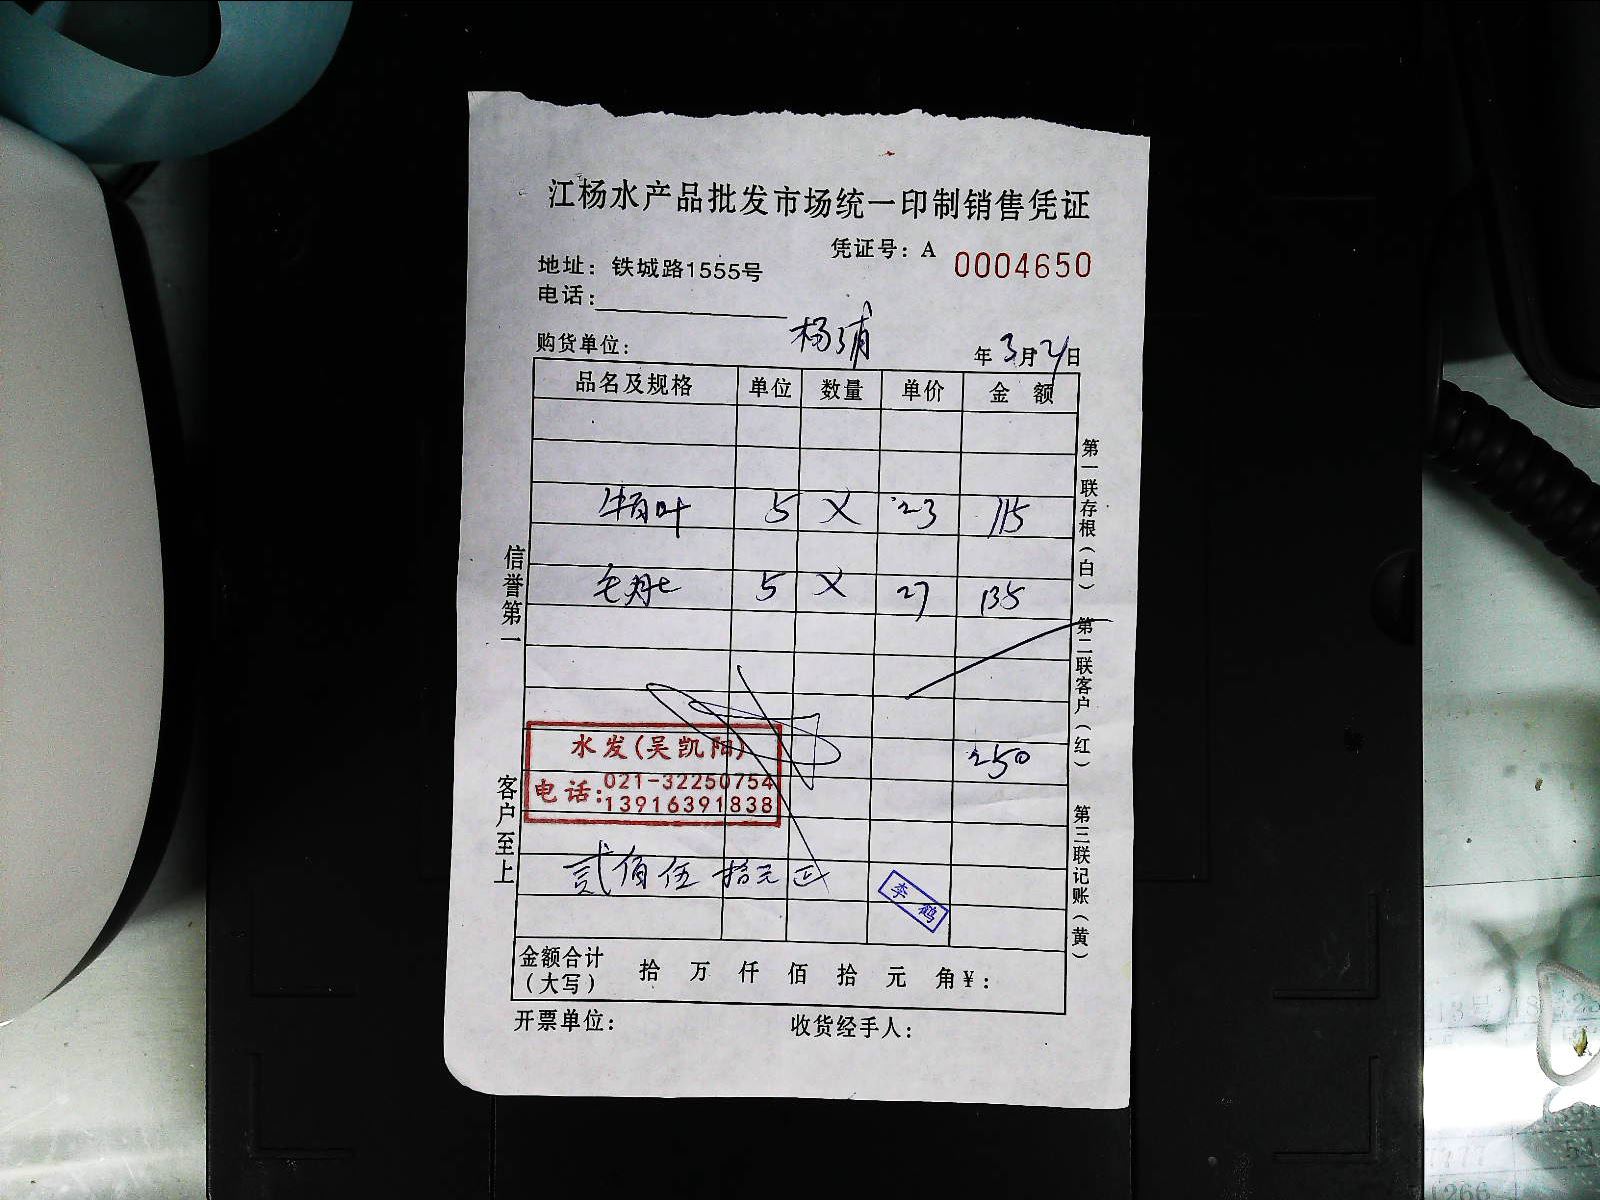 江杨水产品批发市场统一印制销售凭证
凭证号：A 0004650
地址：铁城路1555号
电话：
购货单位： 杨浦 年 3月21日
品名及规格 单位 数量 单价 金 额
牛百叶 5 X 23 115
毛肚 5 X 27 135
250
水发(吴凯阳)
电话：021-32250754
13916391838
贰佰伍拾元正
李鹤
金额合计（大写） 拾 万 仟 佰 拾 元 角 ¥：
开票单位： 收货经手人：
信誉第一
客户至上
第一联存根（白）
第二联客户（红）
第三联记账（黄）